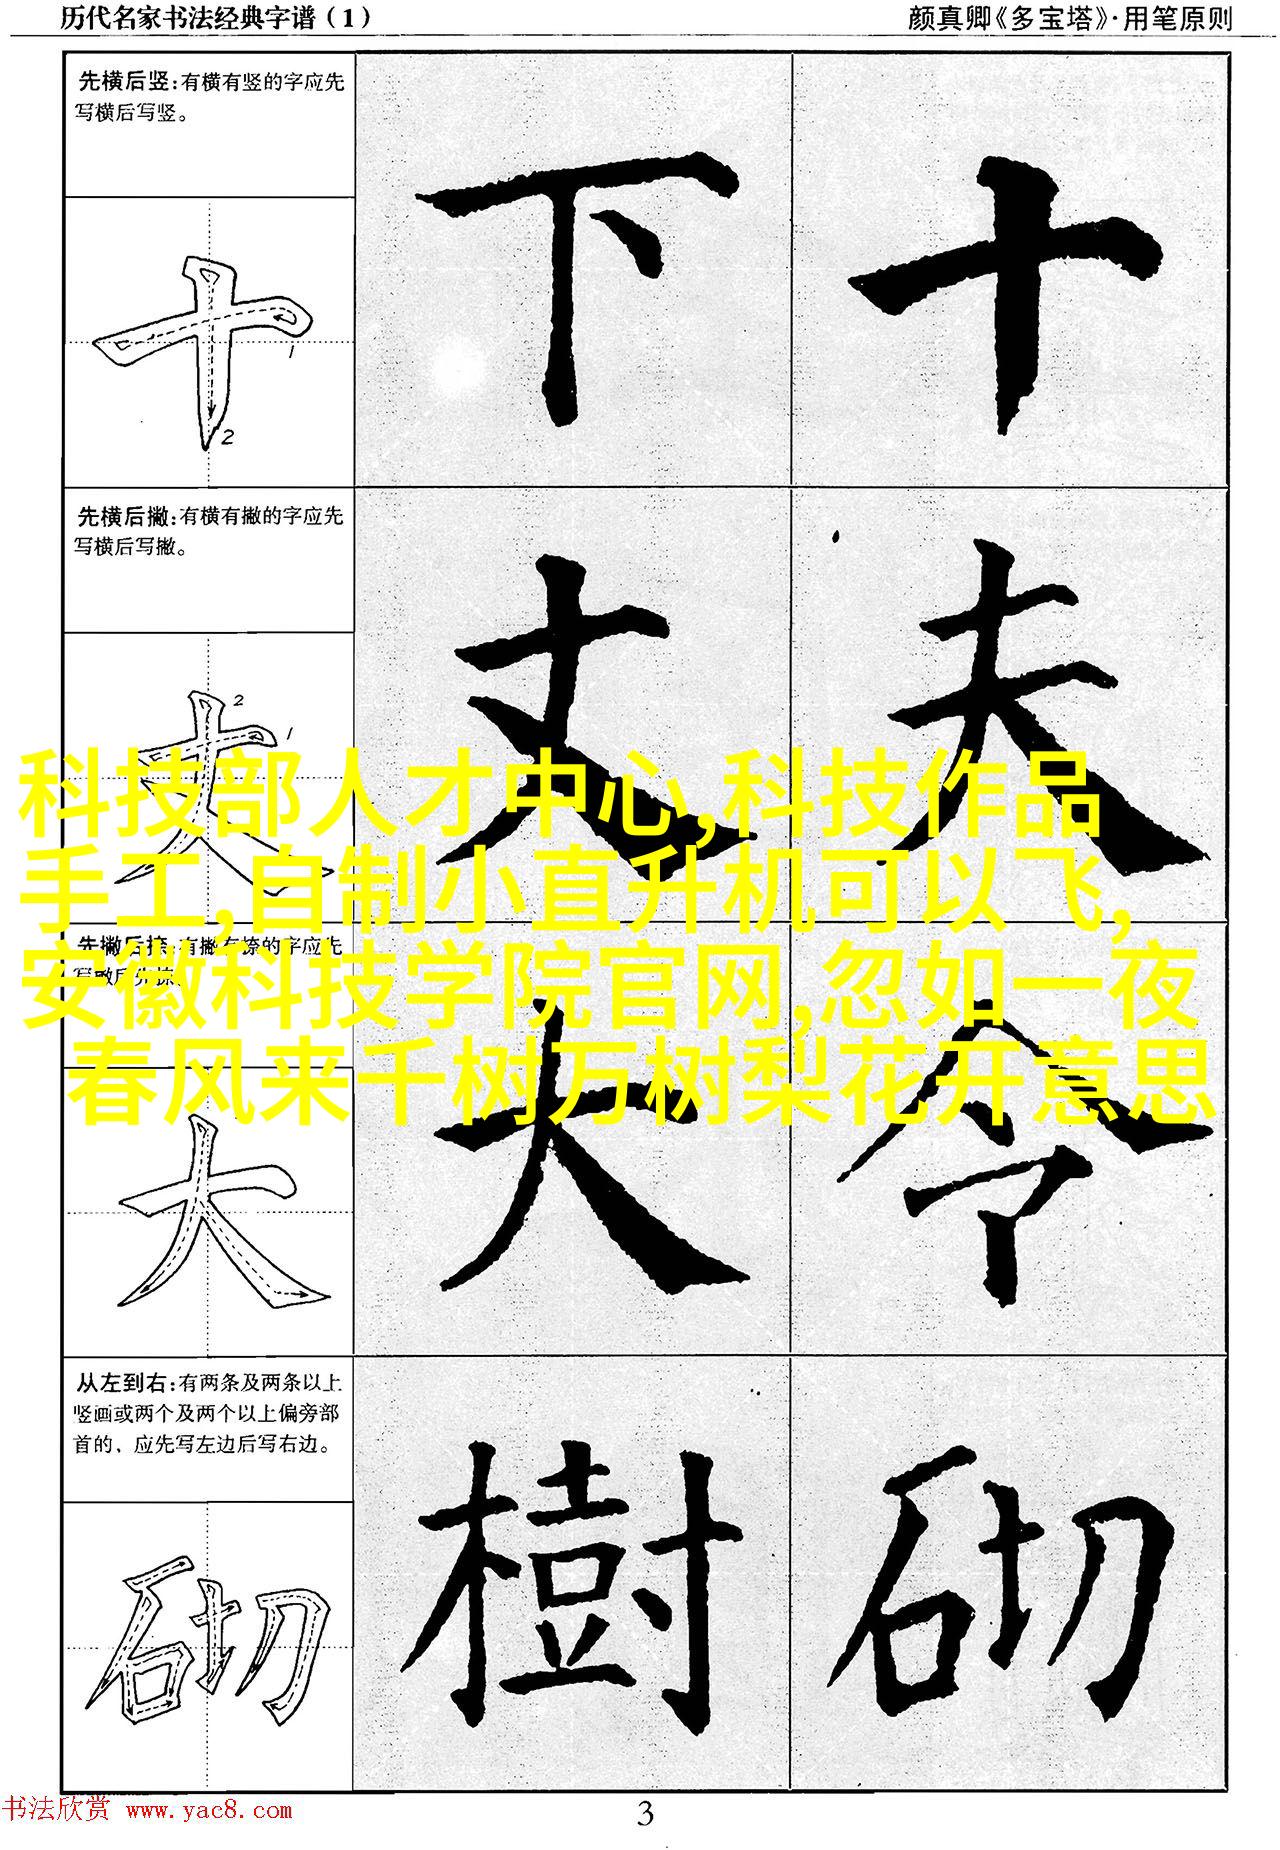 历代名家书法经典字谱（1）
颜真卿《多宝塔》·用笔原则
先横后竖：有横有竖的字应先
写横后写竖。
下
十
1
2
先横后撇：有横有撇的字应先
写横后写撇。
丈
夫
2
1
科技部人才中心,科技作品
手工,自制小直升机可以飞,
安徽科技学院官网,忽如一夜
春风来千树万树梨花开意思
先撇后捺：有撇有捺的字应先
大
令
从左到右：有两条及两条以上
竖画或两个及两个以上偏旁部
首的，应先写左边后写右边。
樹
砌
书法欣赏 www.yac8.com
3